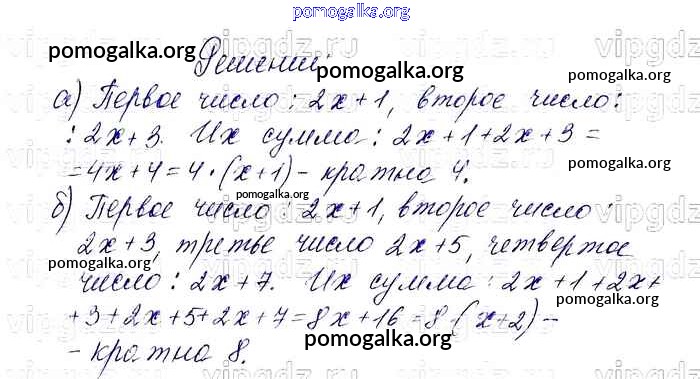 pomogalka.org
vipgdz.ru
pomogalka.org
Решений:
pomogalka.org
pomogalka.org
а) Первое число: 2x+1, второе число:
: 2x+3. Их сумма: 2x+1+2x+3=
=4x+4=4·(x+1)-кратна 4.
pomogalka.org
pomogalka.org
б) Первое число: 2x+1, второе число:
2x+3, третье число 2x+5, четвертое
pomogalka.org
число: 2x+7. Их сумма: 2x+1+2x+
pomogalka.org
+3+2x+5+2x+7=8x+16=8·(x+2)-
pomogalka.org
-кратна 8.